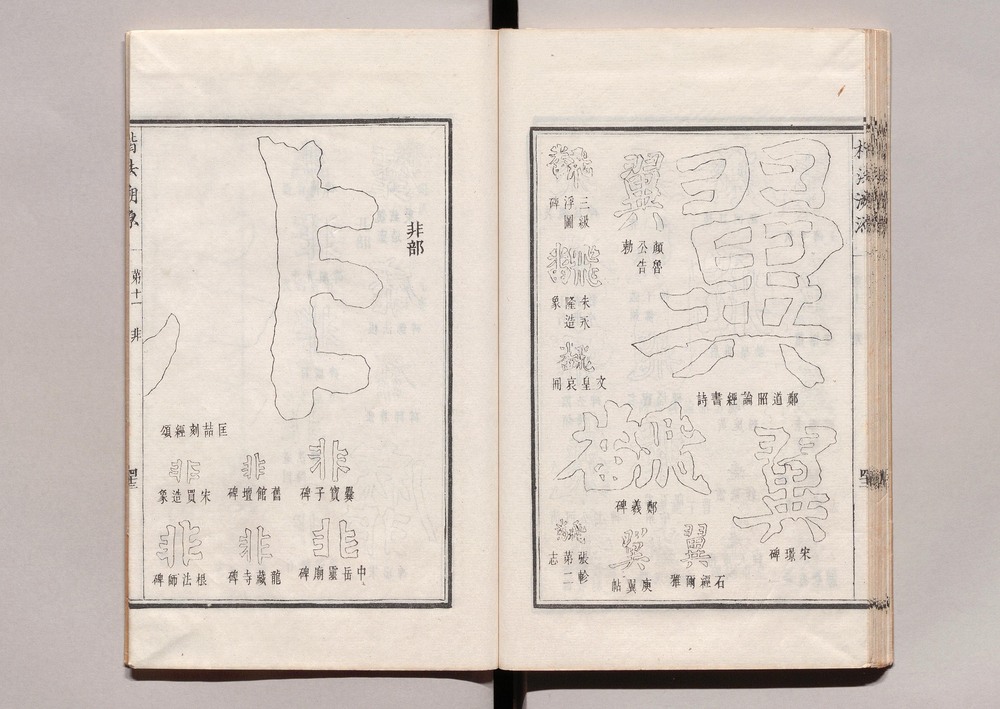 翼
鄭道昭論經書詩
翼
宋璟碑
翼
顏魯公告勅
翼
石經爾雅
翼
庾翼帖
三級浮圖碑
朱永隆造象
文皇哀冊
鄭羲碑
張軫第二志
非部
匡喆刻經頌
非
爨寶子碑
非
舊館壇碑
非
宋買造象
非
中岳靈廟碑
非
龍藏寺碑
非
根法師碑
第十一
非